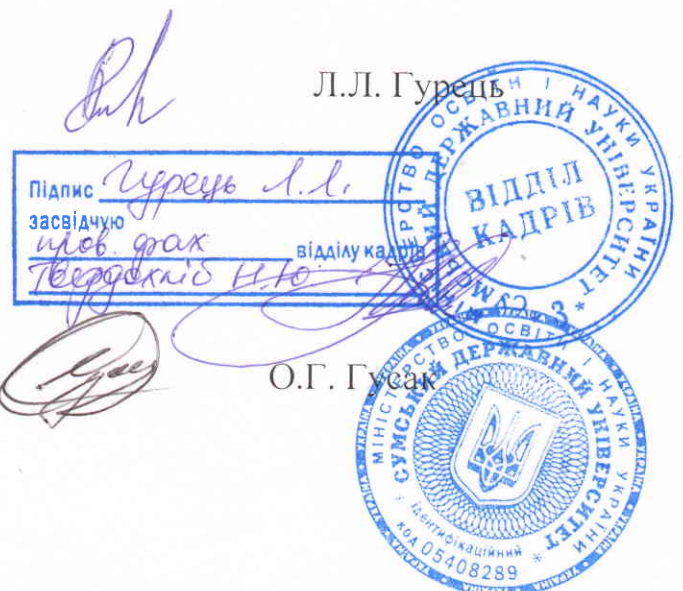 Л.Л. Гурець
Підпис Гурець Л.Л.
засвідчую
пров. фах відділу кадрів
Твердохліб Н.Ю.
МІНІСТЕРСТВО ОСВІТИ І НАУКИ УКРАЇНИ
СУМСЬКИЙ ДЕРЖАВНИЙ УНІВЕРСИТЕТ
ВІДДІЛ
КАДРІВ
3
О.Г. Гусак
УКРАЇНА
МІНІСТЕРСТВО ОСВІТИ І НАУКИ УКРАЇНИ
СУМСЬКИЙ ДЕРЖАВНИЙ УНІВЕРСИТЕТ
Ідентифікаційний
код 05408289